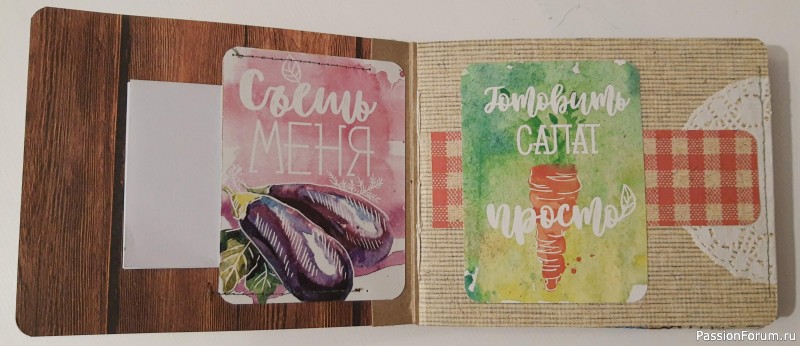 Съешь
МЕНЯ
Готовить
САЛАТ
просто
PassionForum.ru